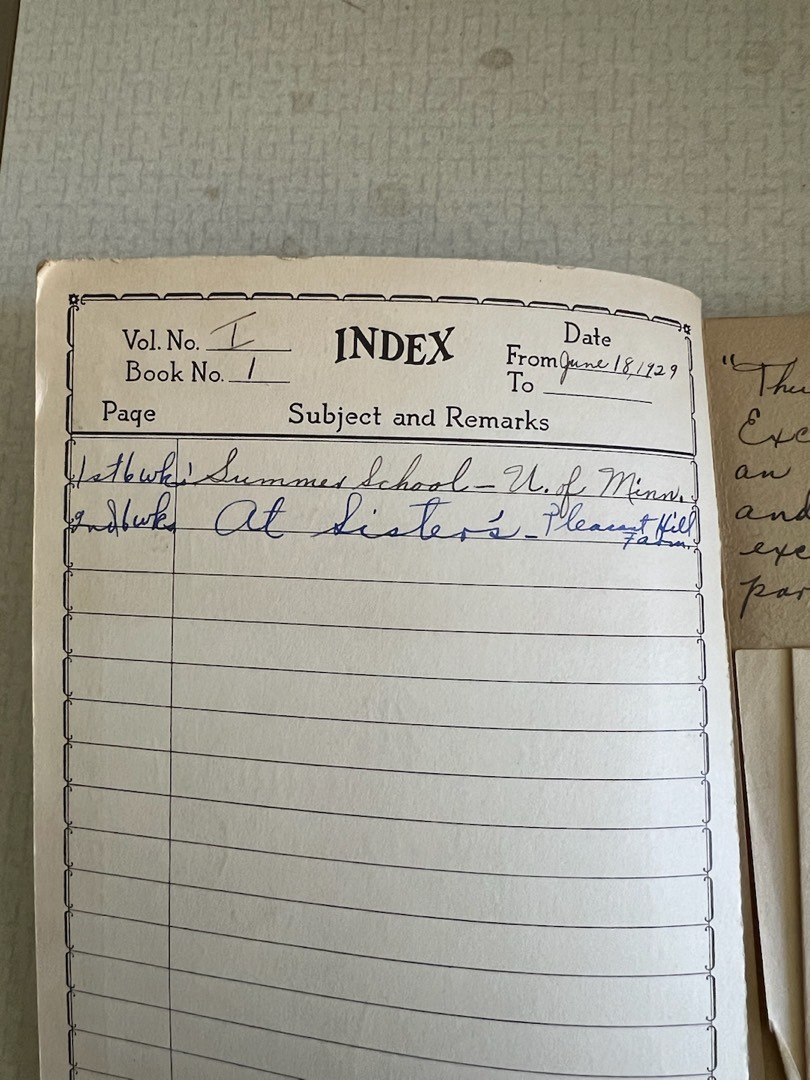 Vol. No. I
INDEX
Date
From June 18, 1929
Book No. 1
To
Page
Subject and Remarks
1st 6 wks! Summer School – U. of Minn.
2nd 6 wks At Sister's – Pleasant Hill
Farm.
"Thu
Exc
an
and
exc
par